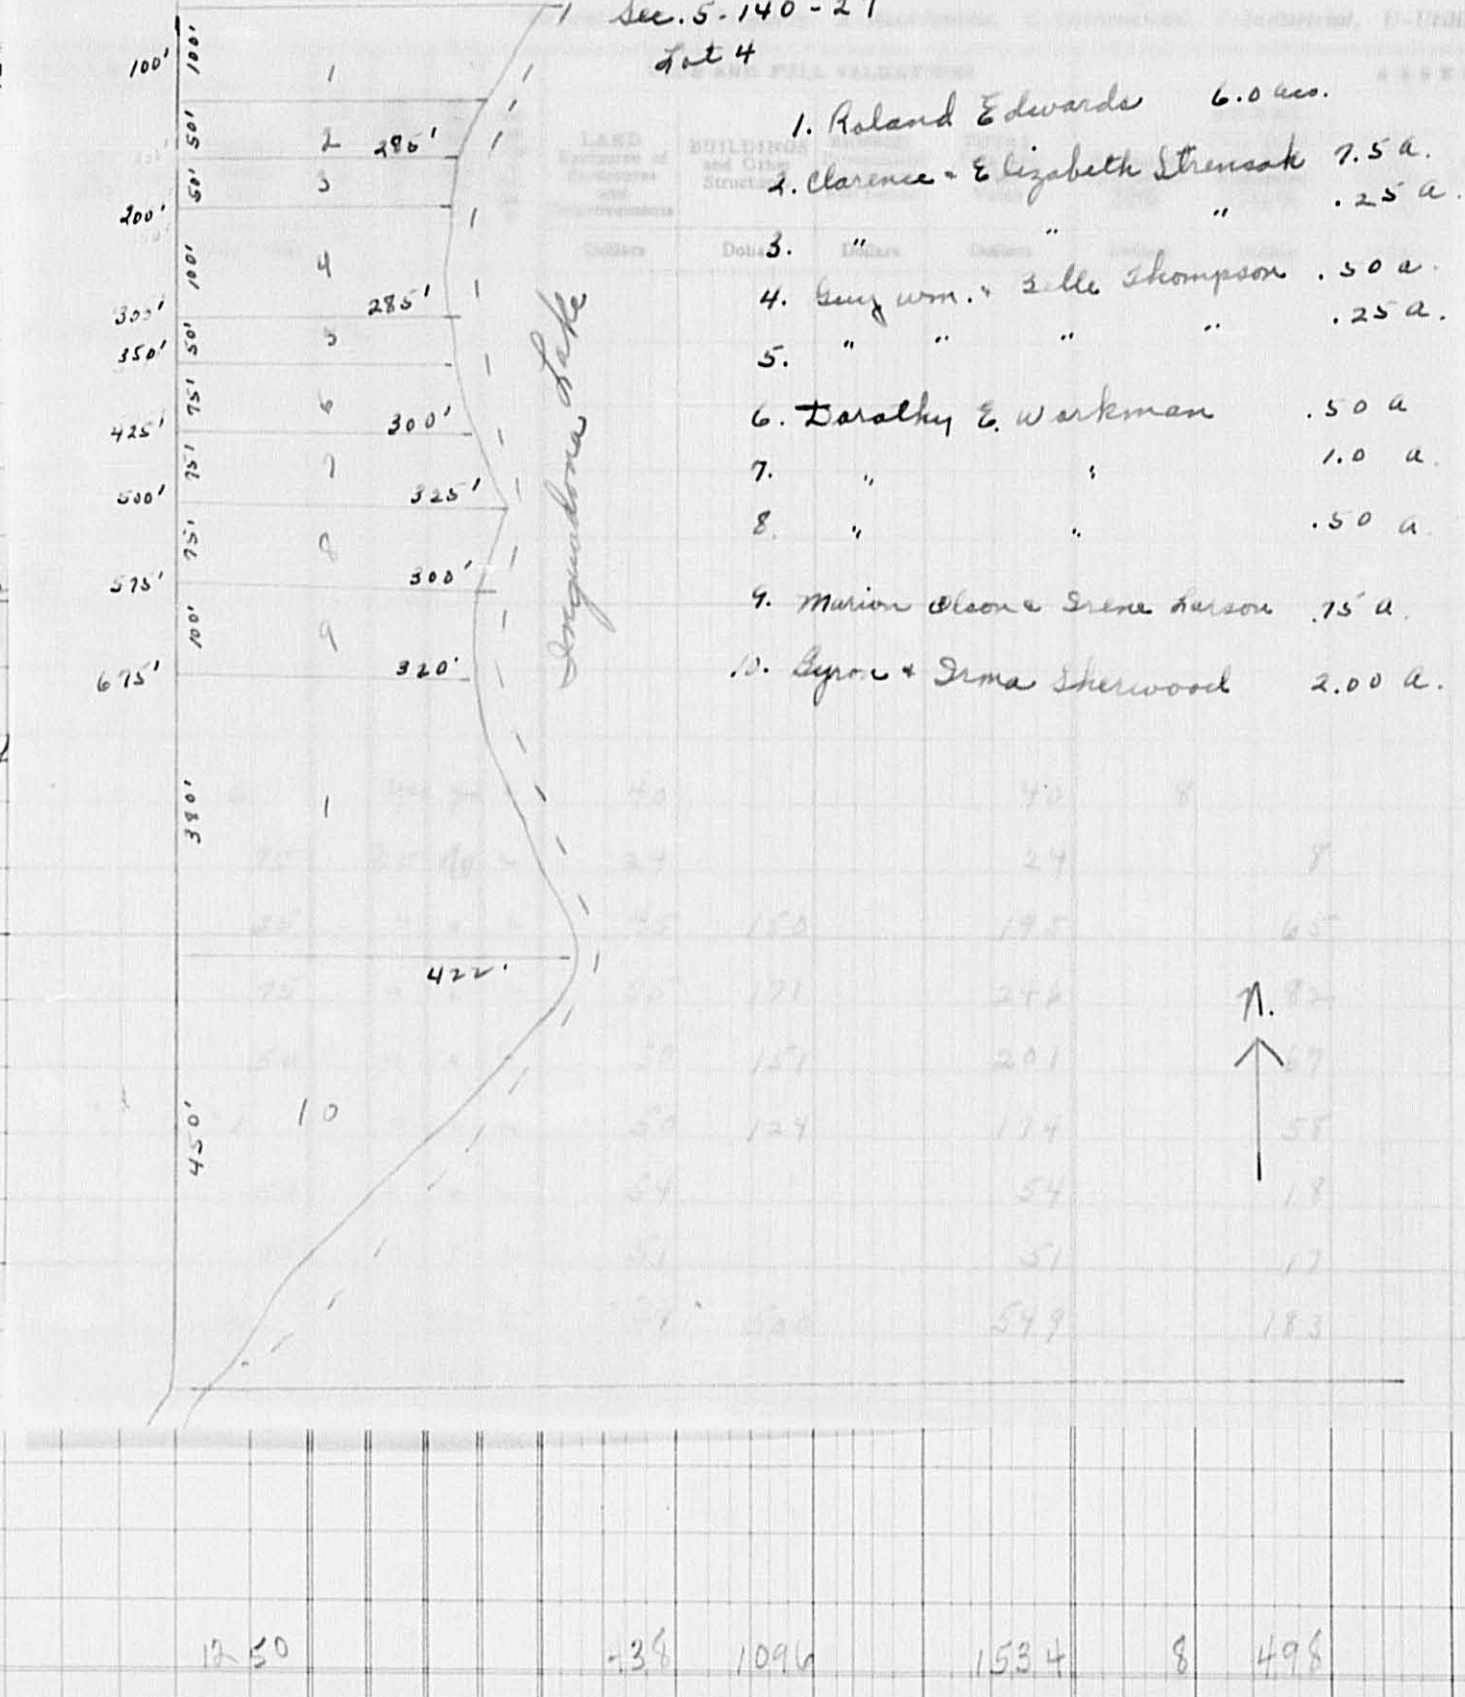 Sec. 5 - 140 - 27
Lot 4
1. Roland Edwards 6.0 acs.
2. Clarence & Elizabeth Strensok 7.5 a.
3. " " " .25 a.
4. Guy Wm. & Belle Thompson .50 a.
5. " " " " .25 a.
6. Dorothy E. Workman .50 a
7. " " 1.0 a.
8. " " .50 a.
9. Marion Olson & Irene Larson .75 a.
10. Byron & Irma Sherwood 2.00 a.
100' 100' 1
50' 2 285'
50' 3
200'
100' 4
300' 285'
50' 5
350'
75' 6
425' 300'
75' 7
500' 325'
75' 8
575' 300'
100' 9
675' 320'
380' 1
422'
450' 10
Lake
N.
LAND
BUILDINGS
and Other
Structures
Dollars Dollars Dollars
40 40 8
24 24 8
150 195 65
171 246 82
50 151 201 67
50 124 174 58
54 54 18
51 51 17
549 183
1250 438 1096 1534 8 498